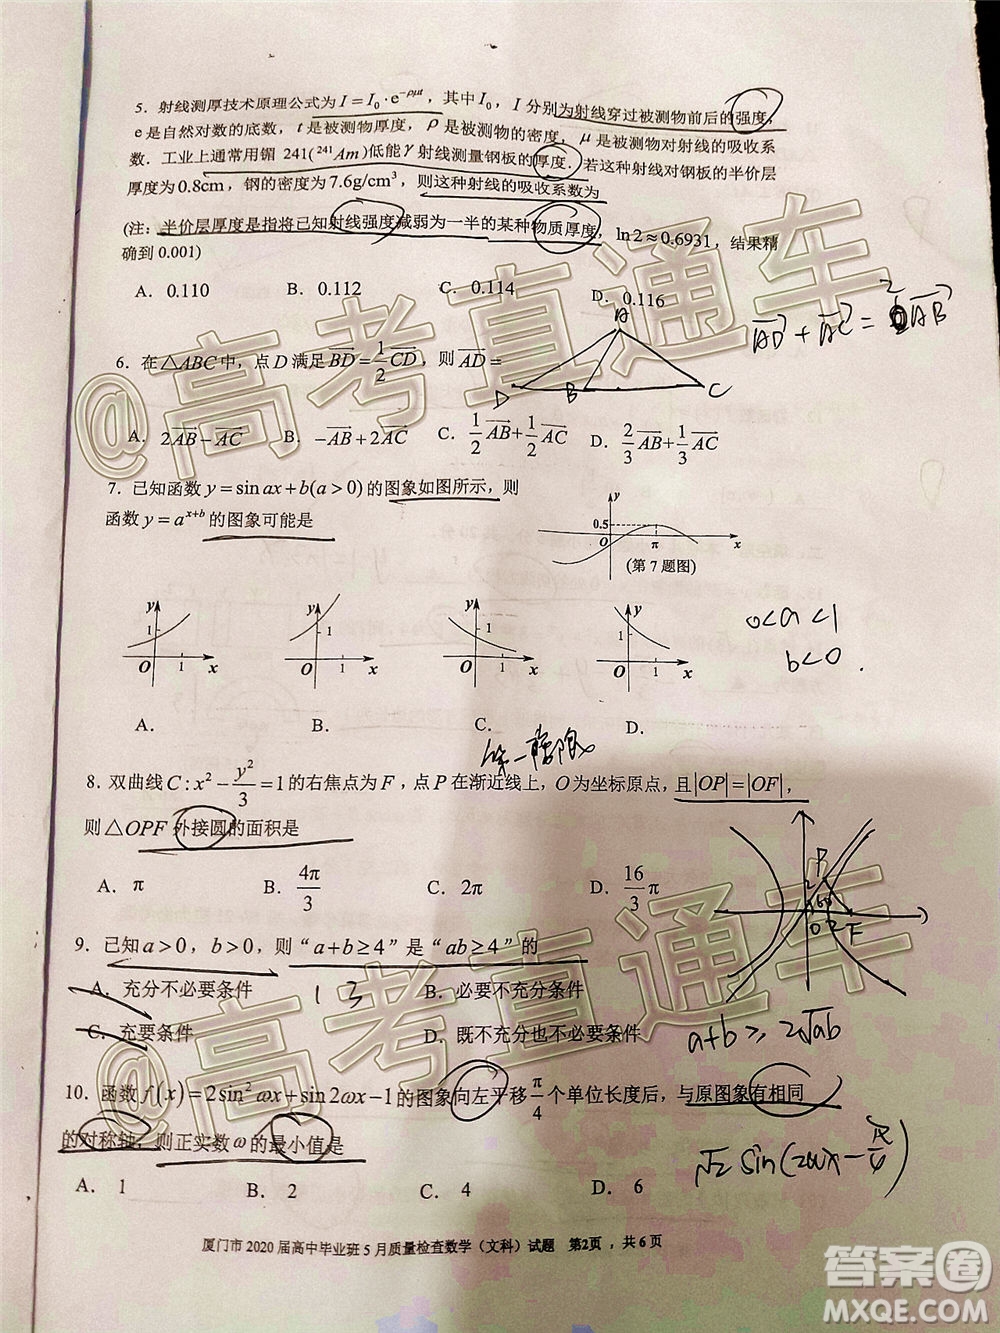 5．射线测厚技术原理公式为 I＝I₀·e^(-ρμt)，其中 I₀，I 分别为射线穿过被测物前后的强度，
e 是自然对数的底数，t 是被测物厚度，ρ 是被测物的密度，μ 是被测物对射线的吸收系
数．工业上通常用镅 241(²⁴¹Am)低能 γ 射线测量钢板的厚度．若这种射线对钢板的半价层
厚度为 0.8cm，钢的密度为 7.6g/cm³，则这种射线的吸收系数为
(注：半价层厚度是指将已知射线强度减弱为一半的某种物质厚度，ln2≈0.6931，结果精
确到 0.001)
A．0.110 B．0.112 C．0.114 D．0.116
AD + AC = 2AB
A
6．在△ABC 中，点 D 满足 BD=1/2CD，则 AD=
D B C
A．2AB−AC B．−AB+2AC C．1/2AB+1/2AC D．2/3AB+1/3AC
7．已知函数 y=sinax+b(a>0)的图象如图所示，则
函数 y=a^(x+b) 的图象可能是
y 0.5 O π x
(第 7 题图)
y 1 O 1 x
y 1 O 1 x
y 1 O 1 x
y 1 O 1 x
0<a<1
b<0.
A． B． C． D．
第一象限
8．双曲线 C : x²−y²/3=1 的右焦点为 F，点 P 在渐近线上，O 为坐标原点，且|OP|=|OF|，
则△OPF 外接圆的面积是
P 2 60 O 2 F
A．π B．4π/3 C．2π D．16/3π
9．已知 a>0，b>0，则 “a+b≥4” 是 “ab≥4” 的
A．充分不必要条件 B．必要不充分条件
1 3
C．充要条件 D．既不充分也不必要条件
a+b ≥ 2√ab
10．函数 f(x)=2sin²ωx+sin2ωx−1 的图象向左平移 π/4 个单位长度后，与原图象有相同
的对称轴，则正实数 ω 的最小值是
√2 sin(2ωx−π/4)
A．1 B．2 C．4 D．6
厦门市 2020 届高中毕业班 5 月质量检查数学（文科）试题 第2页，共6页
@高考直通车
@高考直通车
答案圈
MXQE.COM